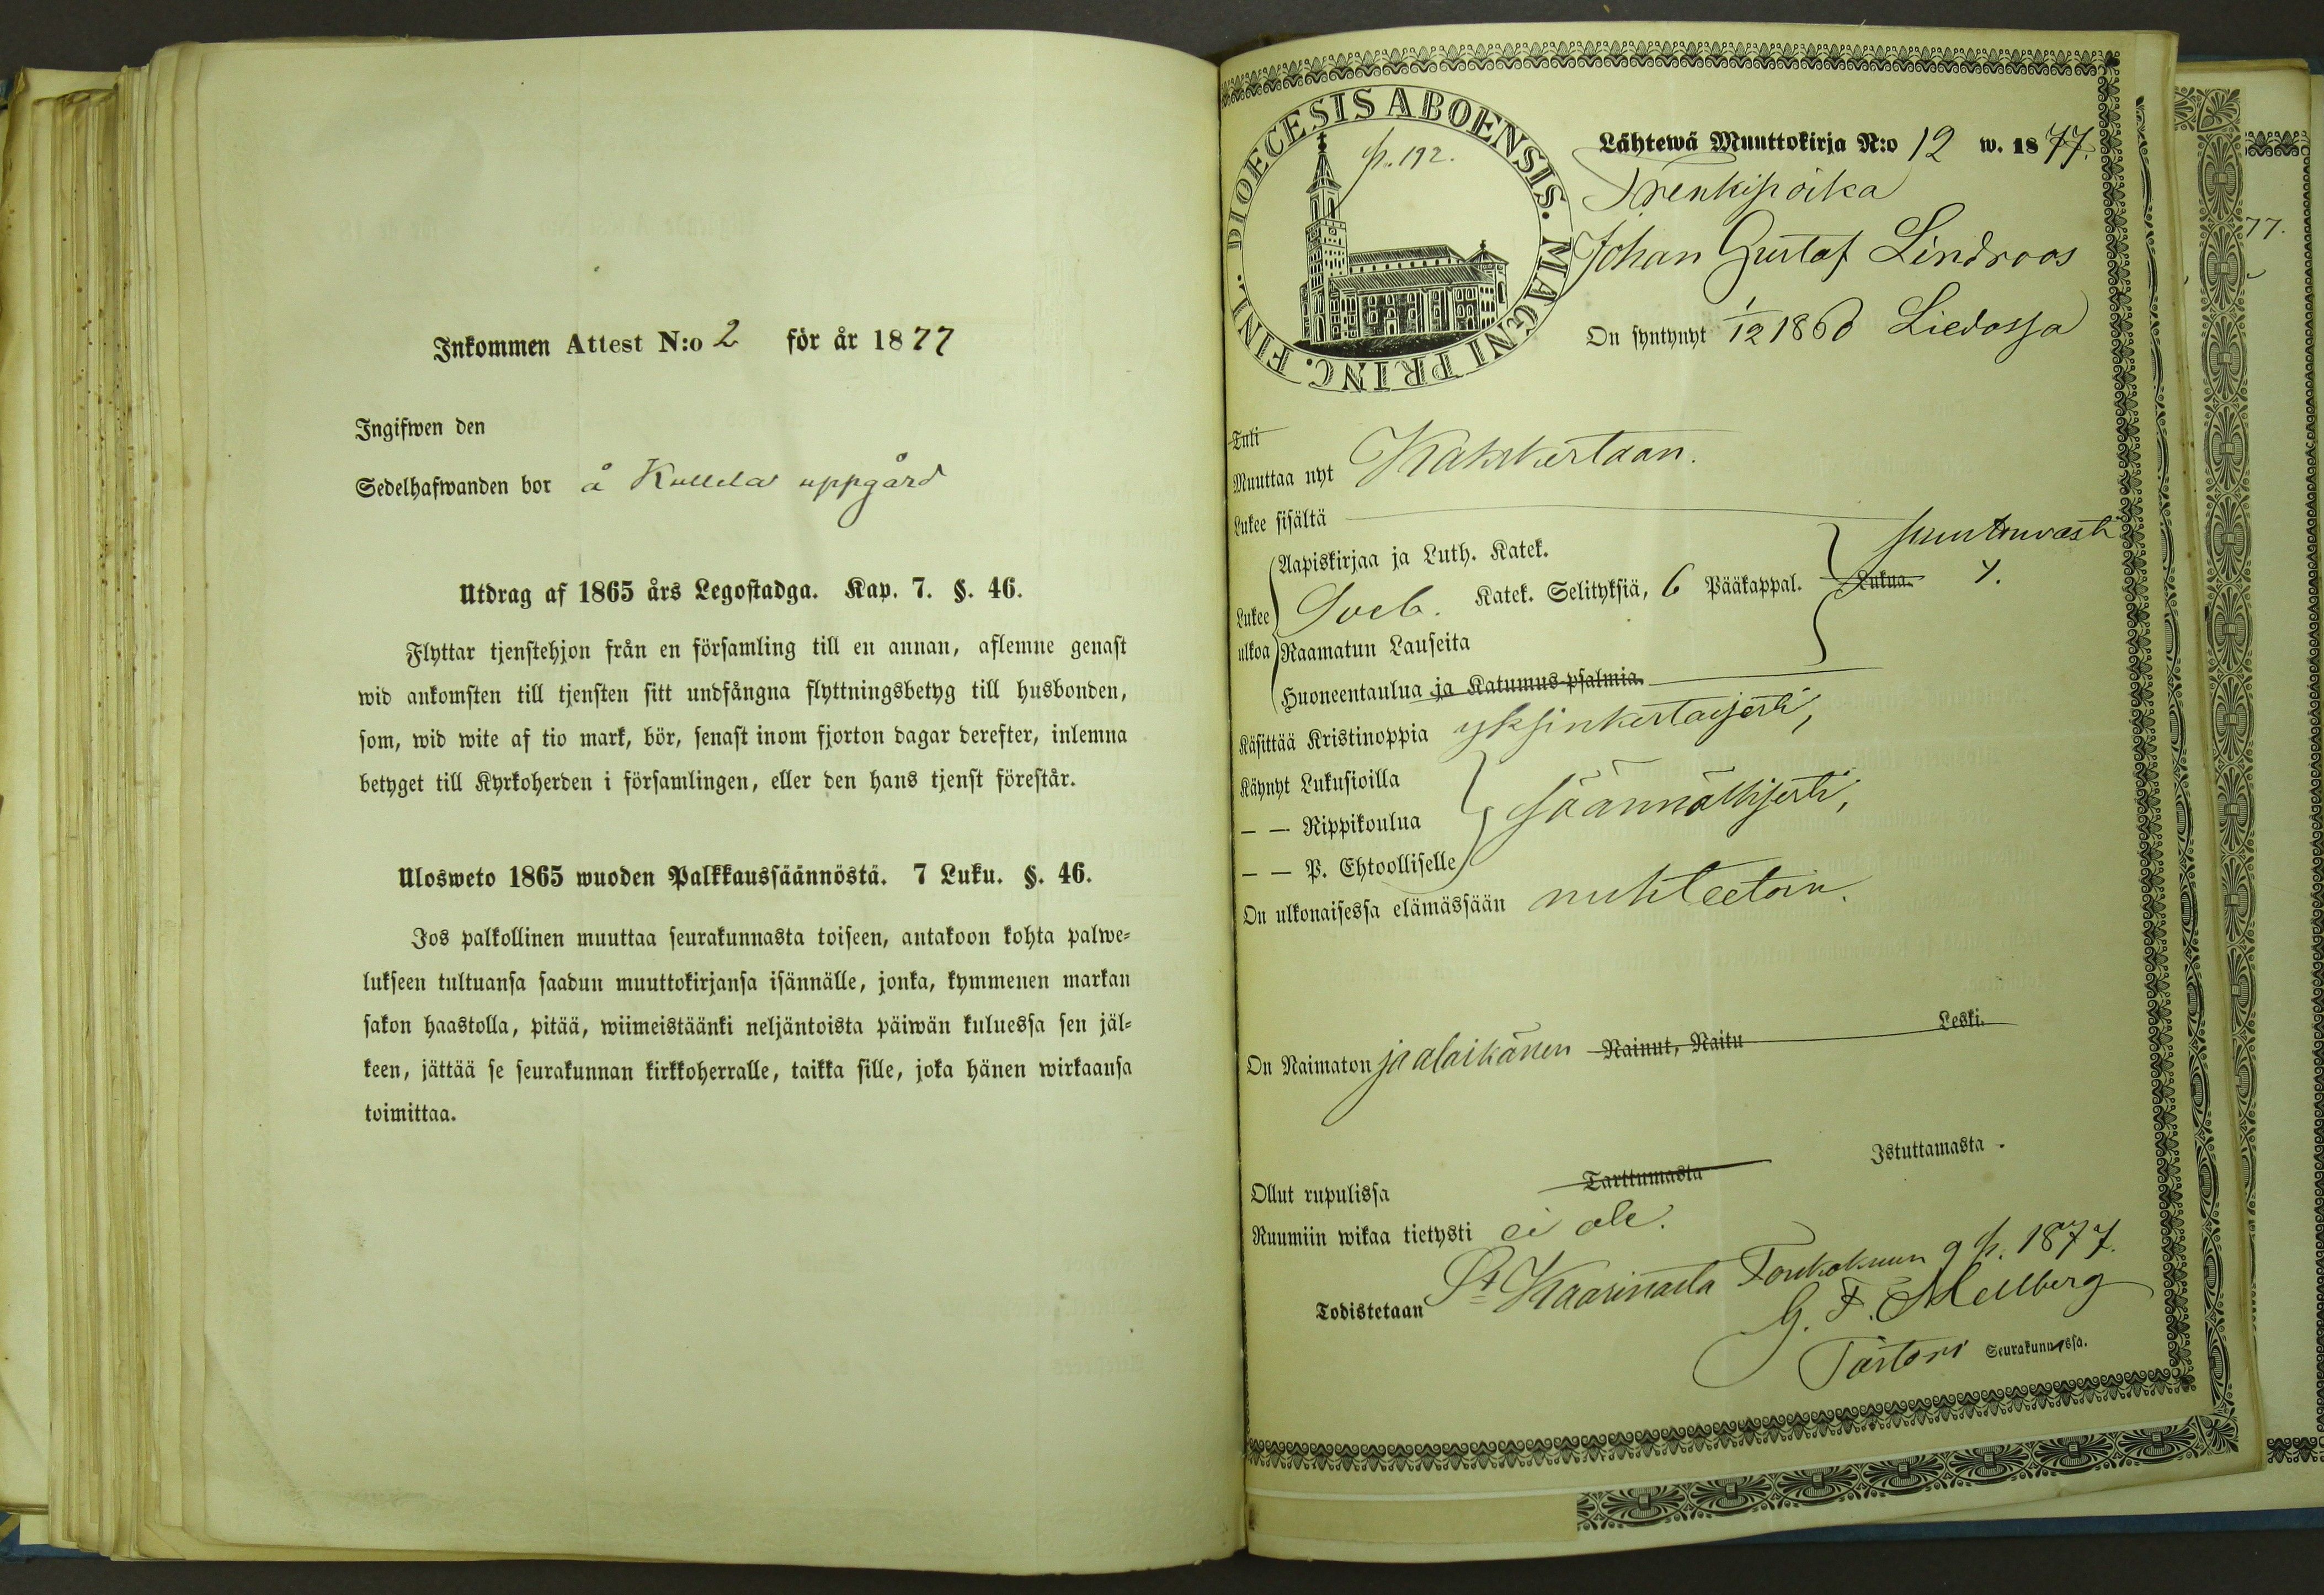 Inkommen Attest N:o 2 för år 1877
Ingifwen den
Sedelhafwanden bor å Kullela uppgård
Utdrag af 1865 års Legostadga. Kap. 7. §. 46.
Flyttar tjenstehjon från en församling till en annan, aflemne genast
wid ankomsten till tjensten sitt undfångna flyttningsbetyg till husbonden,
som, wid wite af tio mark, bör, senast inom fjorton dagar derefter, inlemna
betyget till Kyrkoherden i församlingen, eller den hans tjenst förestår.
Ulosweto 1865 wuoden Palkkaussäännöstä. 7 Luku. §. 46.
Jos palkollinen muuttaa seurakunnasta toiseen, antakoon kohta palwe-
lukseen tultuansa saadun muuttokirjansa isännälle, jonka, kymmenen markan
sakon haastolla, pitää, wiimeistäänki neljäntoista päiwän kuluessa sen jäl-
keen, jättää se seurakunnan kirkkoherralle, taikka sille, joka hänen wirkaansa
toimittaa.
DIOECESIS ABOENSIS. MAGNI PRINC. FINL.
p. 192.
Lähtewä Muuttokirja N:o 12 w. 1877.
Trenkipoika
Johan Gustaf Lindroos
On syntynyt 1/12 1860 Liedossa
Tuli
Muuttaa nyt Kakskertaan.
Lukee sisältä
Aapiskirjaa ja Luth. Katek.
Lukee ulkoa
Sveb. Katek. Selityksiä, 6 Pääkappal.
puuttuvasti
Lukua. 7.
Raamatun Lauseita
Huoneentaulua ja Katumus-psalmia.
Käsittää Kristinoppia yksinkertaisesti,
Käynyt Lukusioilla
— — Rippikoulua säännöllisesti,
— — P. Ehtoolliselle
On ulkonaisessa elämässään nuhteetoin.
On Naimaton ja alaikänen Nainut, Naitu Leski.
Ollut rupulissa Tarttumasta Istuttamasta.
Ruumiin wikaa tietysti ei ole.
Todistetaan St Kaarinasta Toukokuun 9 p. 1877.
G. F. Mellberg
Pastori Seurakunnassa.
77.